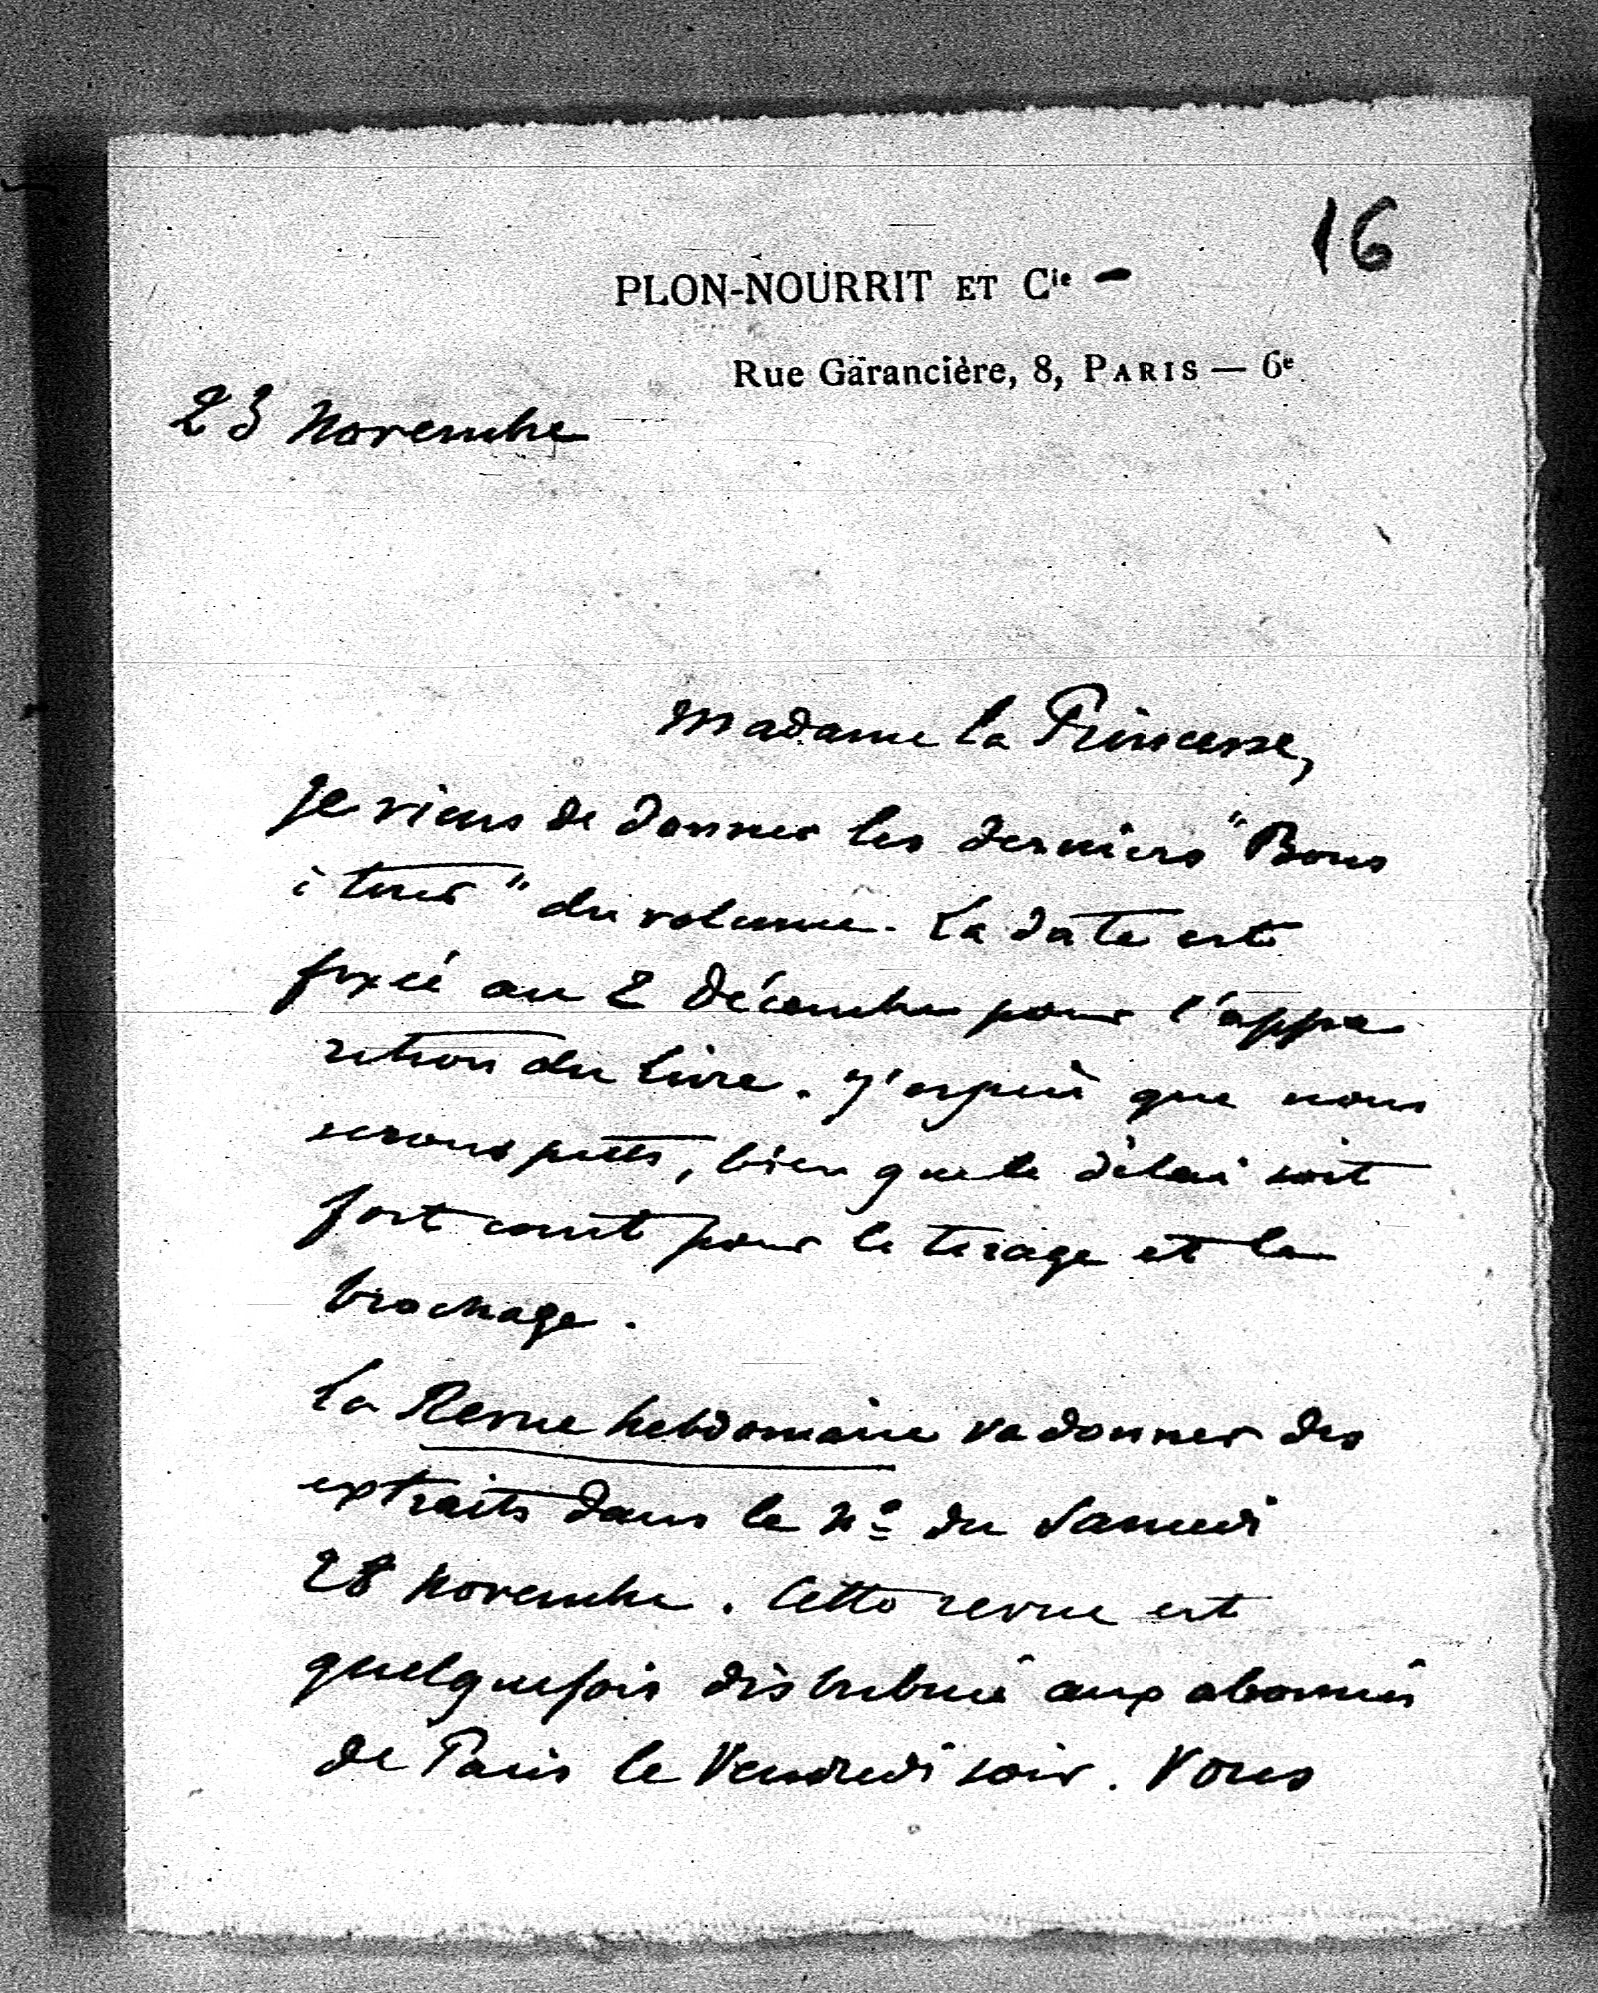 16
PLON-NOURRIT ET Cie -
Rue Garancière, 8, PARIS — 6e
23 Novembre
Madame la Princesse,
Je viens de donner les derniers "Bons
à tirer" du volume. La date est
fixée au 2 Décembre pour l'appa
rition du livre. J'espère que nous
serons prêts, bien que le délai soit
fort court pour le tirage et le
brochage.
La Revue hebdomaire va donner des
extraits dans le No du Samedi
28 Novembre. Cette revue est
quelquefois distribuée aux abonnés
de Paris le Vendredi soir. Vous